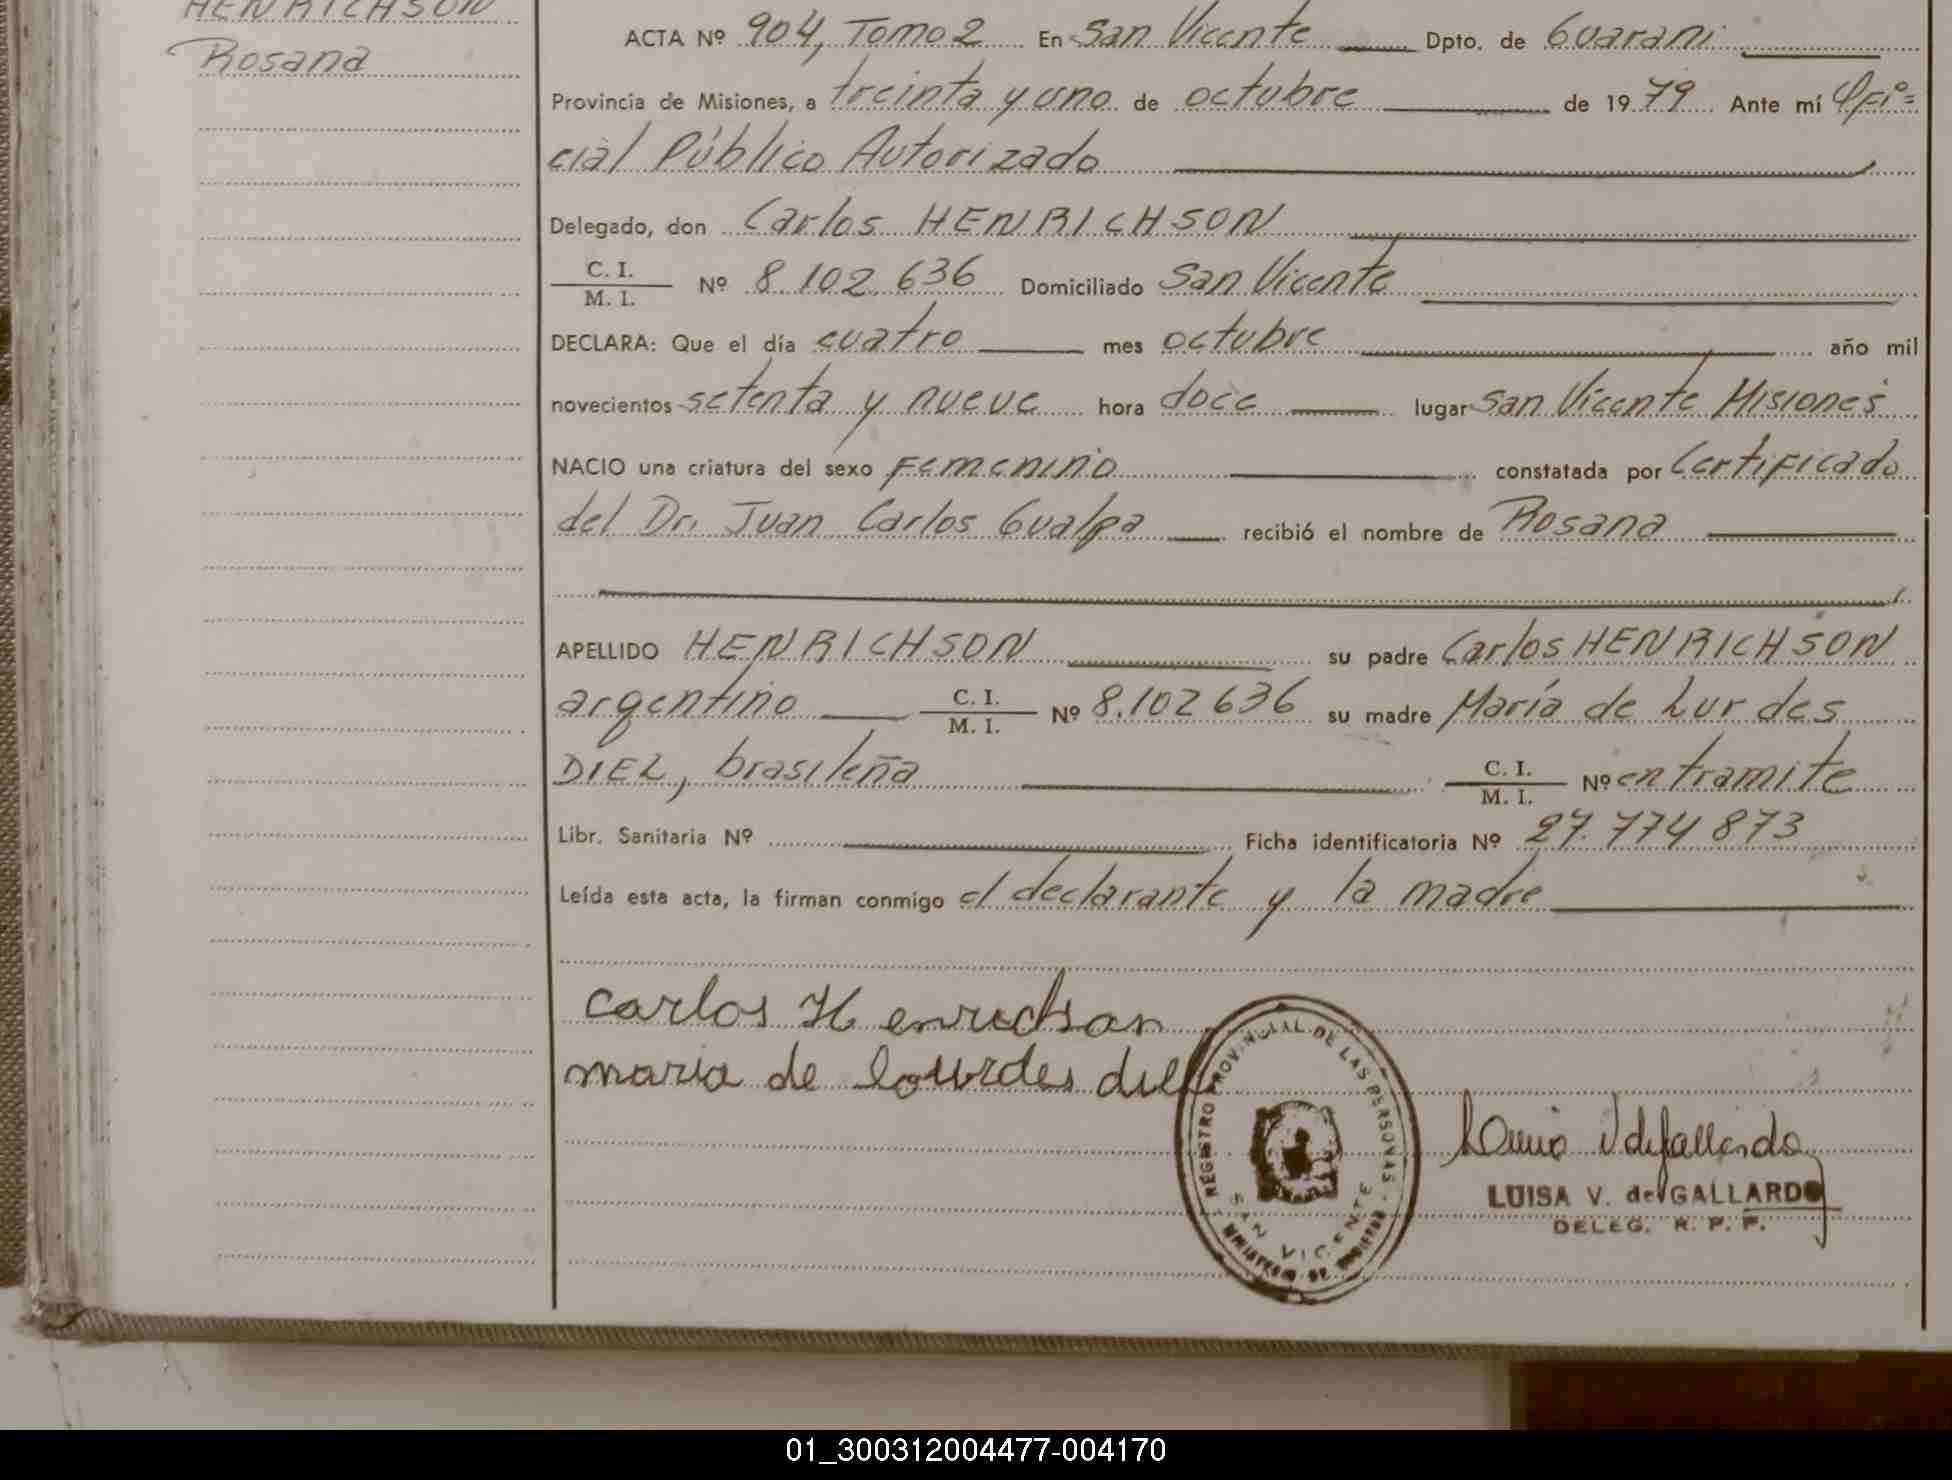 HENRICHSON
Rosana
ACTA Nº 904, Tomo 2 En San Vicente Dpto. de Guaraní
Provincia de Misiones, a treinta y uno de octubre de 1979 Ante mí Ofi=
cial Público Autorizado
Delegado, don Carlos HENRICHSON
C. I.
M. I. Nº 8.102.636 Domiciliado San Vicente
DECLARA: Que el día cuatro mes octubre año mil
novecientos setenta y nueve hora doce lugar San Vicente Misiones
NACIO una criatura del sexo Femenino constatada por Certificado
del Dr. Juan Carlos Gualpa recibió el nombre de Rosana
APELLIDO HENRICHSON su padre Carlos HENRICHSON
argentino C. I.
M. I. Nº 8.102636 su madre María de Lurdes
DIEL, brasileña C. I.
M. I. Nº en tramite
Libr. Sanitaria Nº Ficha identificatoria Nº 27.774873
Leída esta acta, la firman conmigo el declarante y la madre
Carlos Henrichson
maria de lourdes diel
REGISTRO PROVINCIAL DE LAS PERSONAS
SAN VICENTE
MINISTERIO DE GOBIERNO
LUISA V. de GALLARDO
DELEG. R. P. P.
01_300312004477-004170